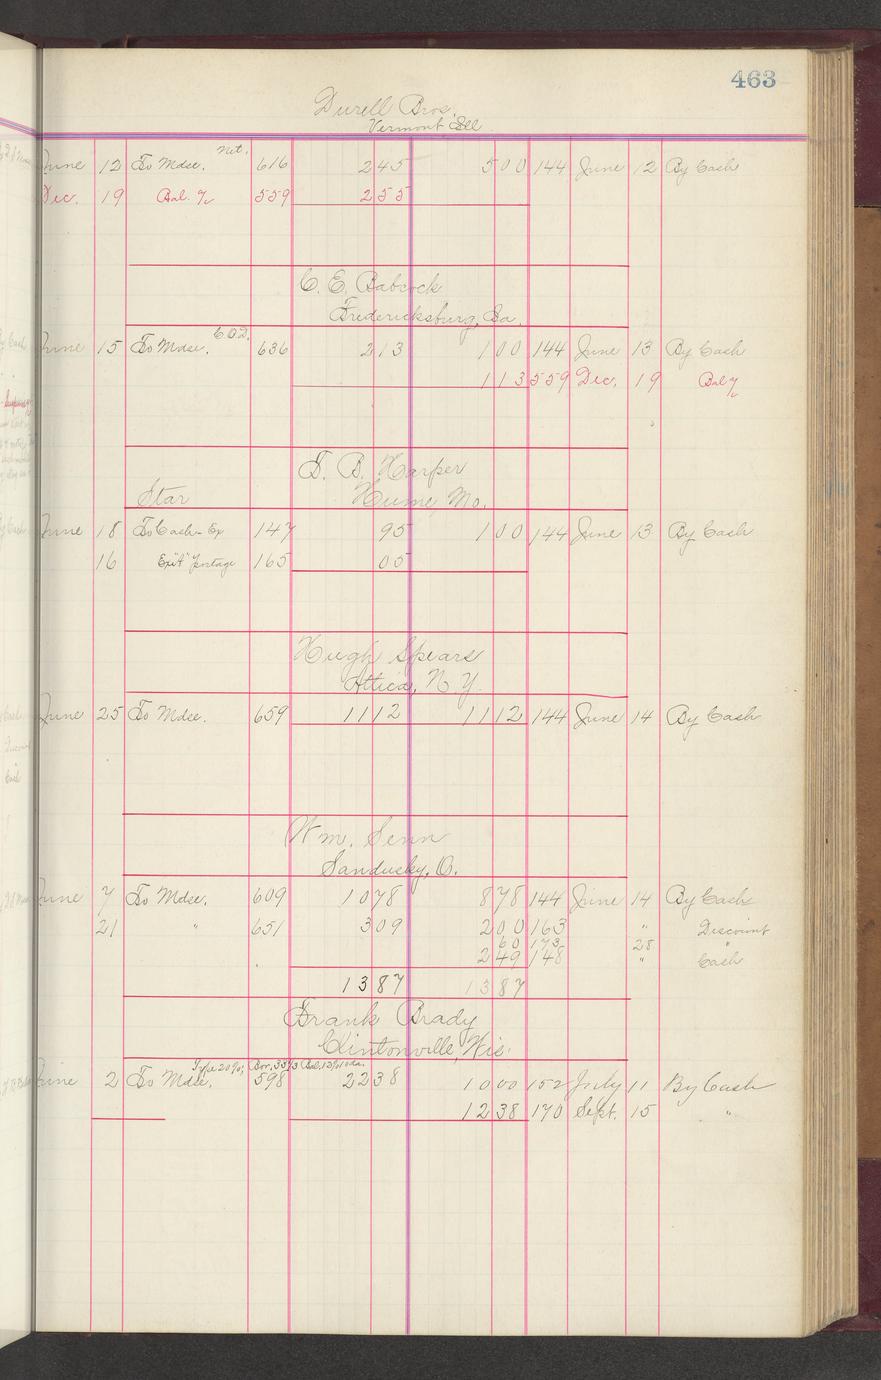 463
Durell Bros.
Vermont Ill.
Net.
June 12 To Mdse. 616 245 500 144 June 12 By Cash
Dec. 19 Bal. 559 255
C. E. Babcock
Fredericksburg, Ia.
C.O.D.
June 15 To Mdse. 636 213 100 144 June 13 By Cash
113 559 Dec. 19 Bal
T. B. Harper
Star Hume Mo.
June 18 To Cash-Ex 147 95 100 144 June 13 By Cash
16 Postage 165 05
Hugh Spears
Attica, N.Y.
June 25 To Mdse. 659 1112 1112 144 June 14 By Cash
Wm. Senn
Sandusky, O.
June 7 To Mdse. 609 1078 878 144 June 14 By Cash
21 " 651 309 200 163 " Discount
60 173 28 "
249 148 " Cash
1387 1387
Frank Brady
Clintonville, Wis.
Type 20%;
June 2 To Mdse. 598 2238 1000 152 July 11 By Cash
1238 170 Sept. 15 "